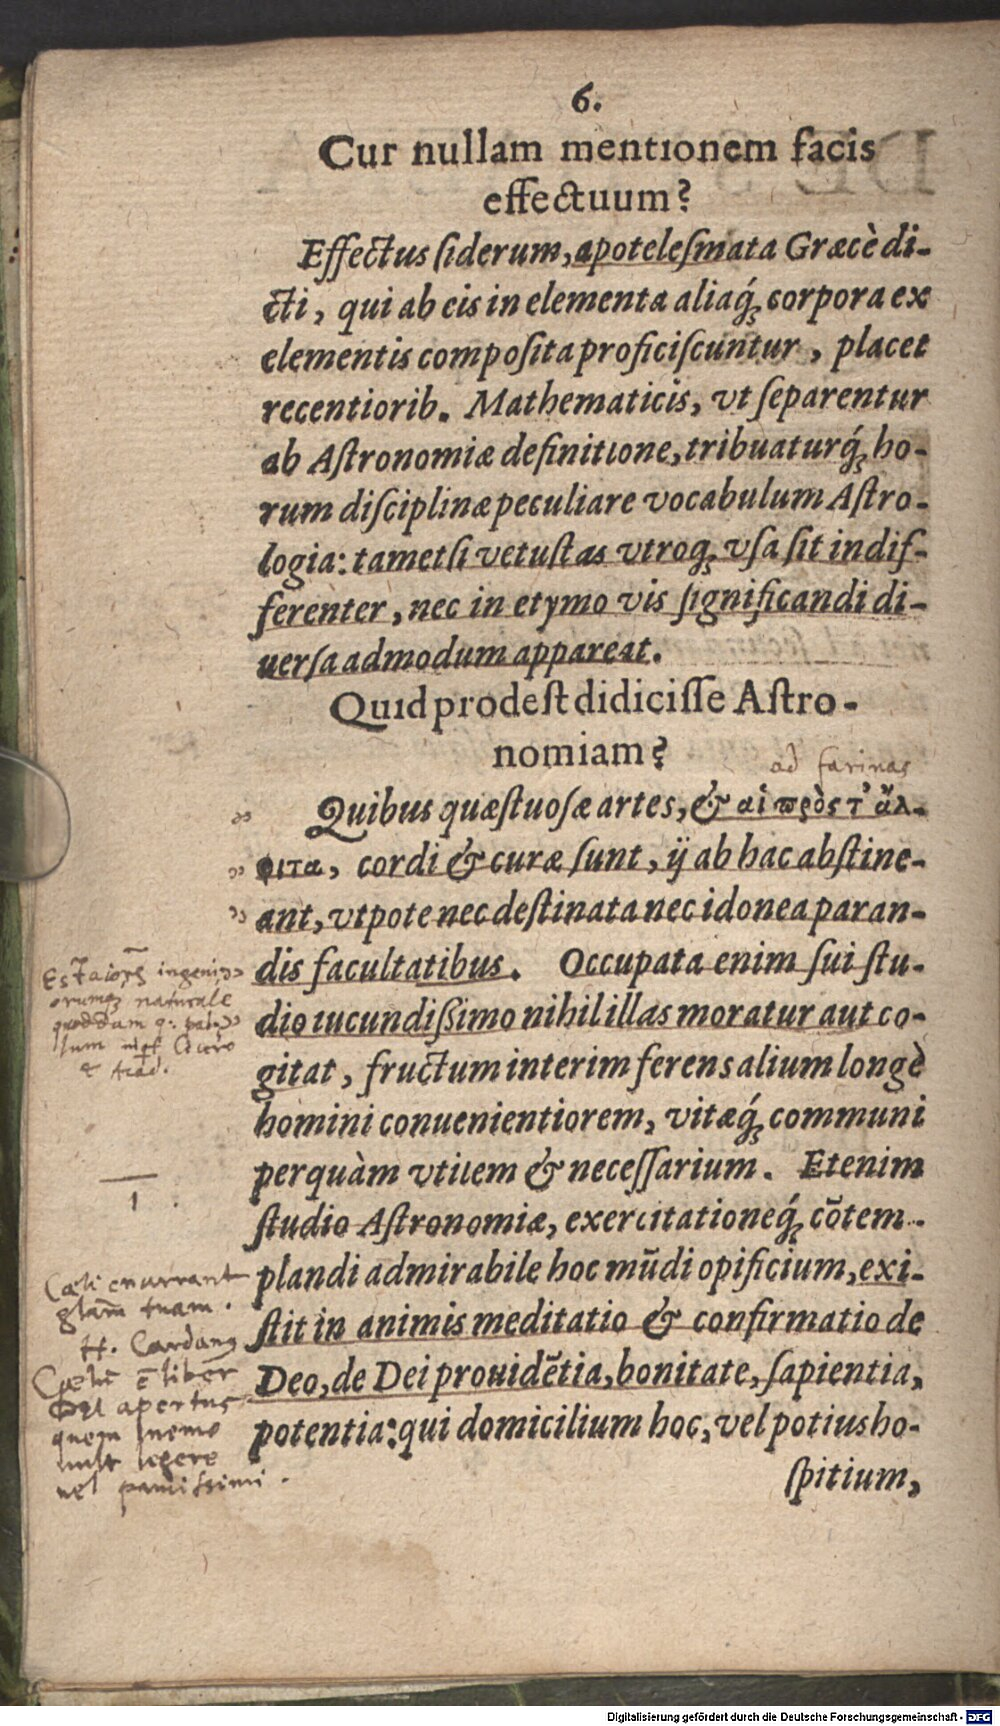 6.
Cur nullam mentionem facis
effectuum?
Effectus ſiderum, apoteleſmata Græcè di-
cti, qui ab eis in elementa aliaq́ꝫ corpora ex
elementis compoſita proficiſcuntur, placet
recentiorib. Mathematicis, vt ſeparentur
ab Aſtronomiæ definitione, tribuaturq́ꝫ ho-
rum diſciplinæ peculiare vocabulum Aſtro-
logia: tametſi vetuſtas vtroqꝫ vſa ſit indif-
ferenter, nec in etymo vis ſignificandi di-
uerſa admodum appareat.
Quid prodeſt didiciſſe Aſtro-
nomiam?
ad farinas
Quibus quæſtuoſæ artes, & αἱ πρὸς τ' ἄλ-
φιτα, cordi & curæ ſunt, ij ab hac abſtine-
ant, vtpote nec deſtinata nec idonea paran-
dis facultatibus. Occupata enim ſui ſtu-
dio iucundißimo nihil illas moratur aut co-
gitat, fructum interim ferens alium longè
homini conuenientiorem, vitæq́ꝫ communi
perquàm vtilem & neceſſarium. Etenim
ſtudio Aſtronomiæ, exercitationeq́ꝫ cōtem-
plandi admirabile hoc mūdi opificium, exi-
ſtit in animis meditatio & confirmatio de
Deo, de Dei prouidētia, bonitate, ſapientia,
potentia: qui domicilium hoc, vel potius ho-
ſpitium,
ingeni
orumqꝫ naturale
quoddam
Cicero
1
Cæli enarrant
glam tuam.
H. Cardanꝫ
Cælū ē liber
apertus
quem nemo
uult legere
uel paucissimi.
Digitalisierung gefördert durch die Deutsche Forschungsgemeinschaft - DFG